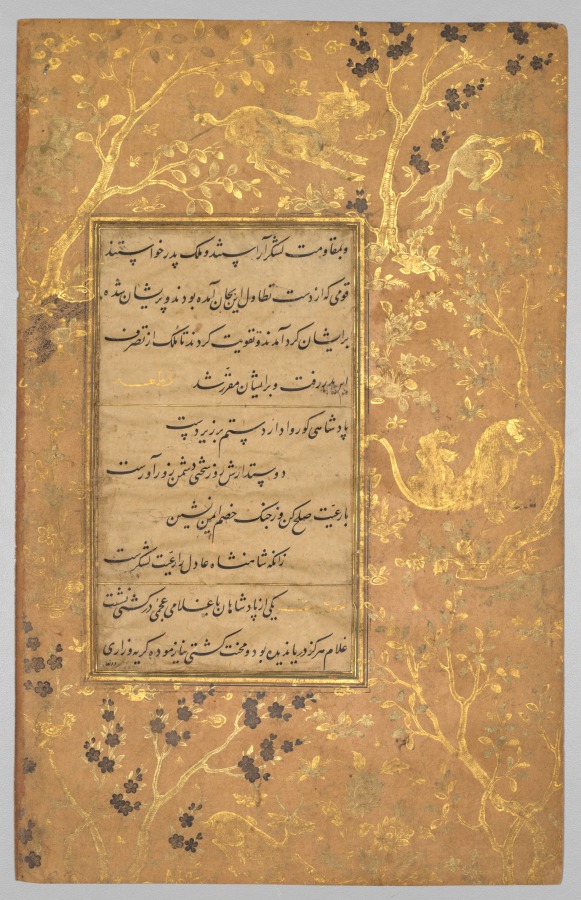 و بمقاومت لشکر آراستند و ملک پدر خواستند
قومی که از دست تطاول او بجان آمده بودند و پریشان شده
بر ایشان گرد آمدند و تقویت کردند تا ملک از تصرف
این بدر رفت و بر ایشان مقرر شد قطعه
پادشاهی کو روا دارد ستم بر زیردست
دوستدارش روز سختی دشمن زورآورست
با رعیت صلح کن وز جنک خصم ایمن نشین
زانکه شاهنشاه عادل را رعیت لشکرست
یکی از پادشاهان با غلامی عجمی در کشتی نشست
غلام هرکز دریا ندیده بود و محنت کشتی نیازموده کریه و زاری